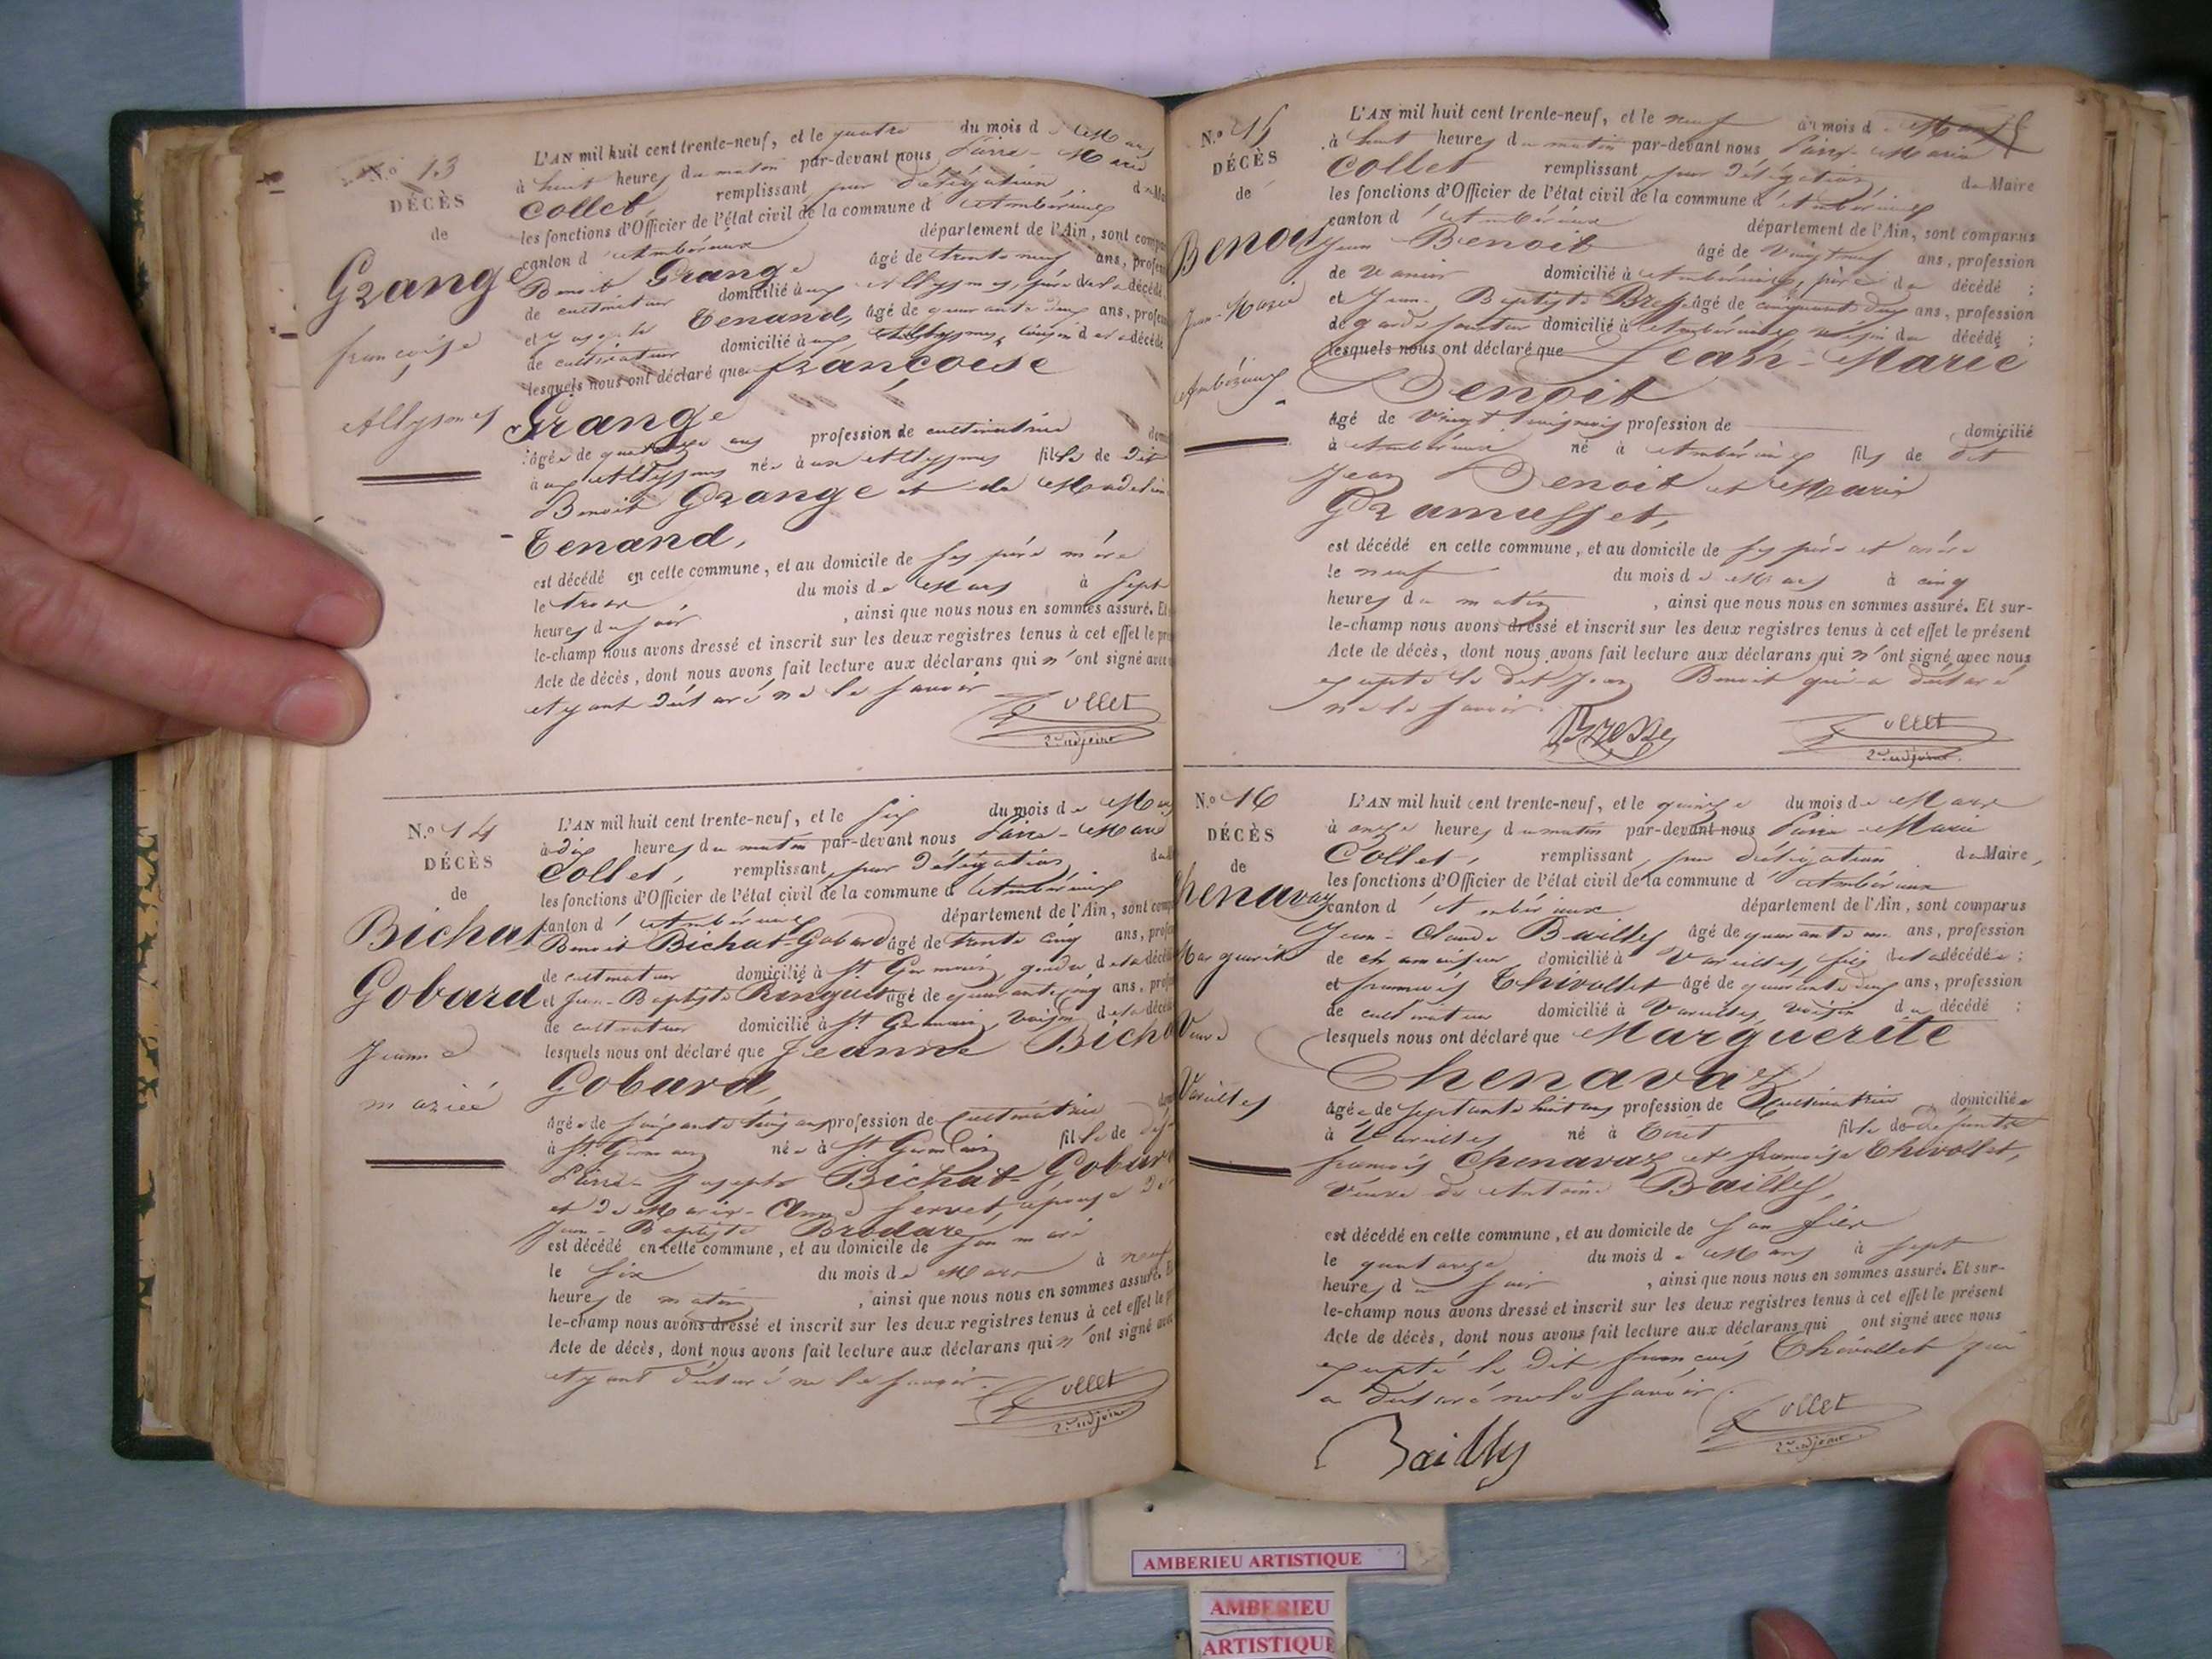 N.o 13
DÉCÈS
de
Grange
françoise
Allysmes
L'AN mil huit cent trente-neuf, et le quatre du mois de Mars
à huit heures du matin par-devant nous Pierre-Marie
Collet remplissant par délégation d Ma
les fonctions d'Officier de l'état civil de la commune d'Ambérieux
canton d'Ambérieux département de l'Ain, sont compa
Benoit Grange âgé de trente neuf ans, profes
de cultivateur domicilié aux Allysmes, père de la décédé
et Joseph Tenand, âgé de quarante deux ans, profes
de cultivateur domicilié aux Allysmes, cousin de la décédé
lesquels nous ont déclaré que françoise
Grange
âgée de ans profession de cultivatrice dom
aux Allysmes née aux Allysmes fille de dit
Benoit Grange et de Madelein
Tenand,
est décédé en cette commune, et au domicile de ses père mère
le trois du mois de Mars à sept
heures du soir , ainsi que nous nous en sommes assuré. Et
le-champ nous avons dressé et inscrit sur les deux registres tenus à cet effet le pré
Acte de décès, dont nous avons fait lecture aux déclarans qui n'ont signé avec
ayant déclaré ne le savoir
Collet
2e adjoint
N.o 14
DÉCÈS
de
Bichat
Gobard
Jeanne
mariée
L'AN mil huit cent trente-neuf, et le six du mois de Mars
à dix heures du matin par-devant nous Pierre-Marie
Collet, remplissant par délégation du M
les fonctions d'Officier de l'état civil de la commune d'Ambérieux
canton d'Ambérieux département de l'Ain, sont comp
Benoit Bichat-Gobard âgé de trente cinq ans, profes
de cultivateur domicilié à St. Germain, gendre de la décédé
et Jean-Baptiste Ringuet âgé de quarante cinq ans, profe
de cultivateur domicilié à St. Germain, voisin de la décédé
lesquels nous ont déclaré que Jeanne Bicha
Gobard,
âgée de soixante trois ans profession de Cultivatrice dom
à St. Germain née à St. Germain fille de def
Pierre-Joseph Bichat-Gobard
et de Marie-Anne Servet, épouse de
Jean-Baptiste Brodare
est décédé en cette commune, et au domicile de son mari
le six du mois de Mars à neuf
heures de matin , ainsi que nous nous en sommes assuré. E
le-champ nous avons dressé et inscrit sur les deux registres tenus à cet effet le p
Acte de décès, dont nous avons fait lecture aux déclarans qui n'ont signé avec
ayant déclaré ne le savoir.
Collet
2e adjoint
N.o 15
DÉCÈS
de
Benoit
Jean-Marie
Ambérieux
L'AN mil huit cent trente-neuf, et le neuf du mois de Mars
à huit heures du matin par-devant nous Pierre-Marie
Collet remplissant par délégation du Maire
les fonctions d'Officier de l'état civil de la commune d'Ambérieux
canton d'Ambérieux département de l'Ain, sont comparus
Jean Benoit âgé de vingt neuf ans, profession
de domicilié à Ambérieux, père du décédé ;
et Jean-Baptiste Bresse âgé de cinquante deux ans, profession
de garde domicilié à Ambérieux voisin du décédé ;
lesquels nous ont déclaré que Jean-Marie
Benoit
âgé de vingt trois mois profession de domicilié
à Ambérieux né à Ambérieux fils de dit
Jean Benoit et Marie
Gramusset,
est décédé en cette commune, et au domicile de ses père et mère
le neuf du mois de Mars à cinq
heures du matin , ainsi que nous nous en sommes assuré. Et sur-
le-champ nous avons dressé et inscrit sur les deux registres tenus à cet effet le présent
Acte de décès, dont nous avons fait lecture aux déclarans qui n'ont signé avec nous
excepté le dit Jean Benoit qui a déclaré
ne le savoir.
Bresse
Collet
2e adjoint.
N.o 16
DÉCÈS
de
Chenavaz
Marguerite
Veuve
Vareilles
L'AN mil huit cent trente-neuf, et le quinze du mois de Mars
à onze heures du matin par-devant nous Pierre-Marie
Collet, remplissant par délégation du Maire,
les fonctions d'Officier de l'état civil de la commune d'Ambérieux
canton d'Ambérieux département de l'Ain, sont comparus
Jean-Claude Bailly âgé de quarante un ans, profession
de domicilié à Vareilles, fils de la décédée ;
et françois Thivollet âgé de quarante deux ans, profession
de cultivateur domicilié à Vareilles, voisin du décédé ;
lesquels nous ont déclaré que Marguerite
Chenavaz
âgée de septante huit ans profession de Cultivatrice domiciliée
à Vareilles né à Torct fille de défunts
françois Chenavaz et françoise Thivollet,
Veuve de Antoine Bailly,
est décédé en cette commune, et au domicile de son fils
le quatorze du mois de Mars à sept
heures du soir , ainsi que nous nous en sommes assuré. Et sur-
le-champ nous avons dressé et inscrit sur les deux registres tenus à cet effet le présent
Acte de décès, dont nous avons fait lecture aux déclarans qui ont signé avec nous
excepté le dit françois Thivollet qui
a déclaré ne le savoir.
Collet
2e adjoint
Bailly
AMBERIEU ARTISTIQUE
AMBERIEU
ARTISTIQUE